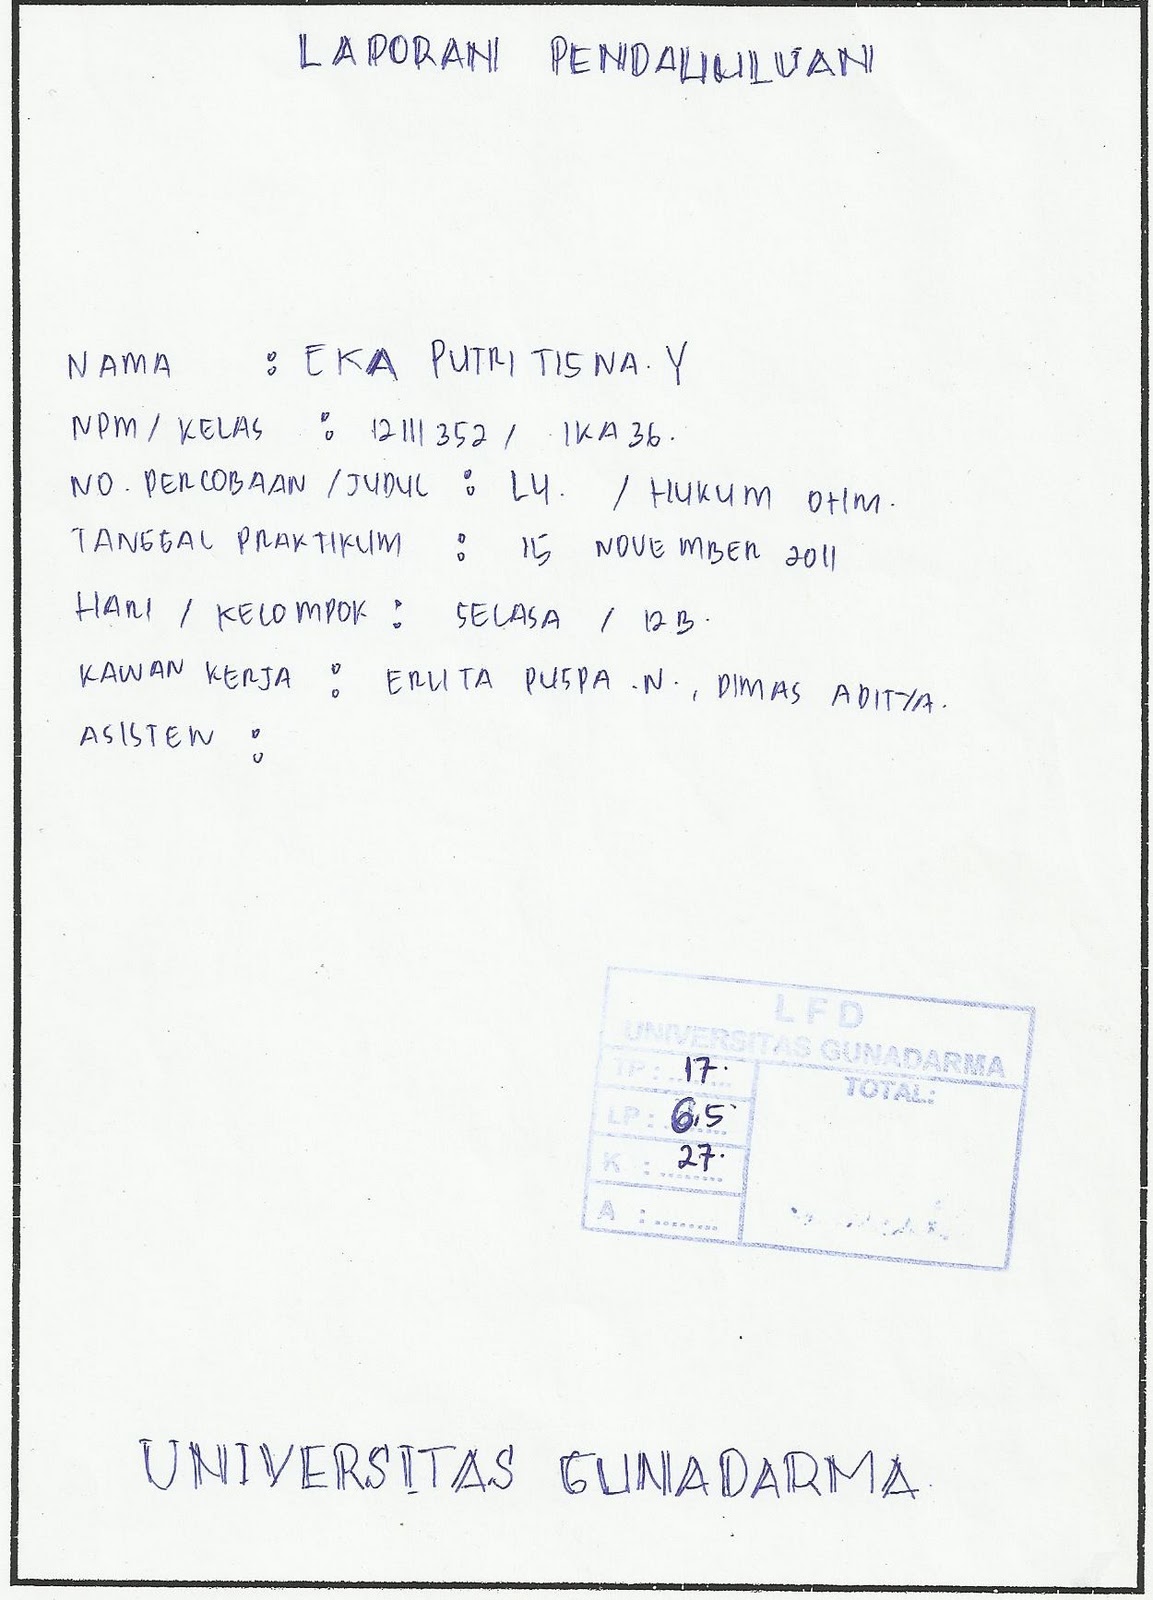 LAPORAN PENDAHULUAN
NAMA : EKA PUTRI TISNA. Y
NPM / KELAS : 12111352 / 1KA36.
NO. PERCOBAAN / JUDUL : L4. / HUKUM OHM.
TANGGAL PRAKTIKUM : 15 NOVEMBER 2011
HARI / KELOMPOK : SELASA / 12B.
KAWAN KERJA : ERLITA PUSPA .N., DIMAS ADITYA.
ASISTEN :
LFD
UNIVERSITAS GUNADARMA
TP : 17.
TOTAL:
LP : 6,5
K : 27.
A : ........
UNIVERSITAS GUNADARMA.